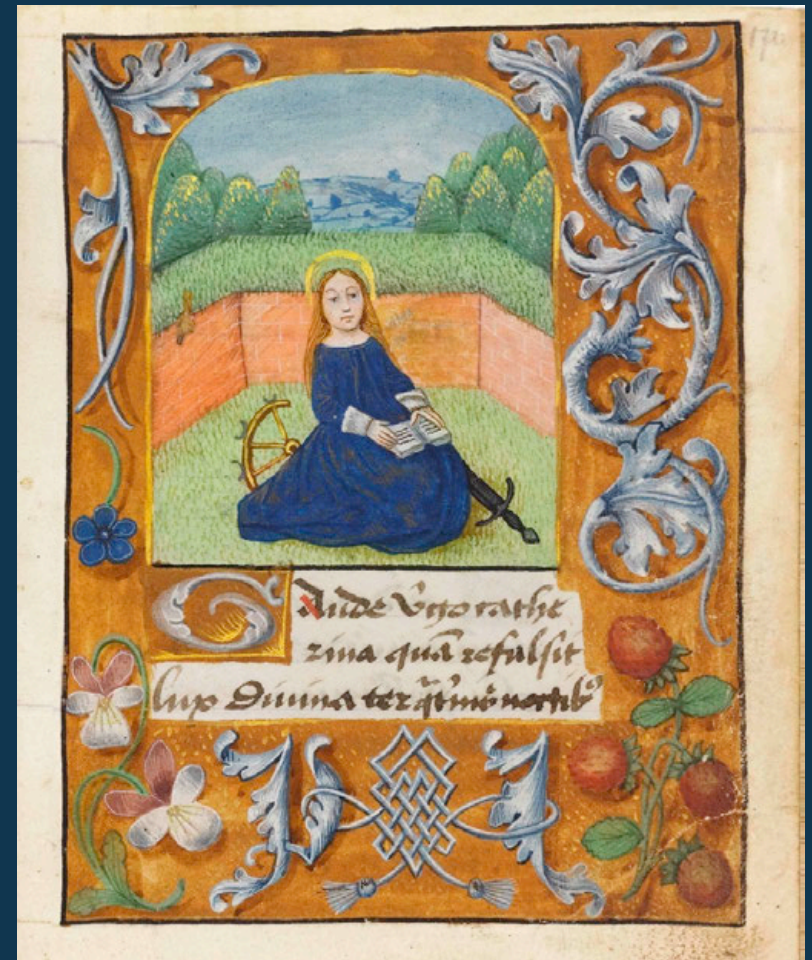 172
GAude v̕go cathe
rina quā refulsit
lux Diuina ter